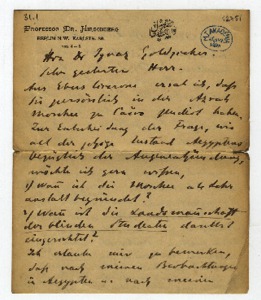 31.1
PROFESSOR DR. HIRSCHBERG
BERLIN N.W.
Herrn Dr Ignaz Goldziher.
Sehr geehrter Herr.
Aus Ebers' ersah ich, daß
Sie persönlich in der Azhar
Moschee zu Cairo studiert haben.
Zur Entscheidung der Frage, wie
alt der jetzige Zustand Aegyptens
bezüglich der Augenentzündung,
möchte ich gern wissen,
1) Wann ist die Moschee als Lehr
anstalt begründet?
2) Wann ist die Landsmannschaft
der blinden Studenten daselbst
eingerichtet?
Ich erlaube mir zu bemerken,
daß nach meinen Beobachtungen
in Aegypten u. nach meinen